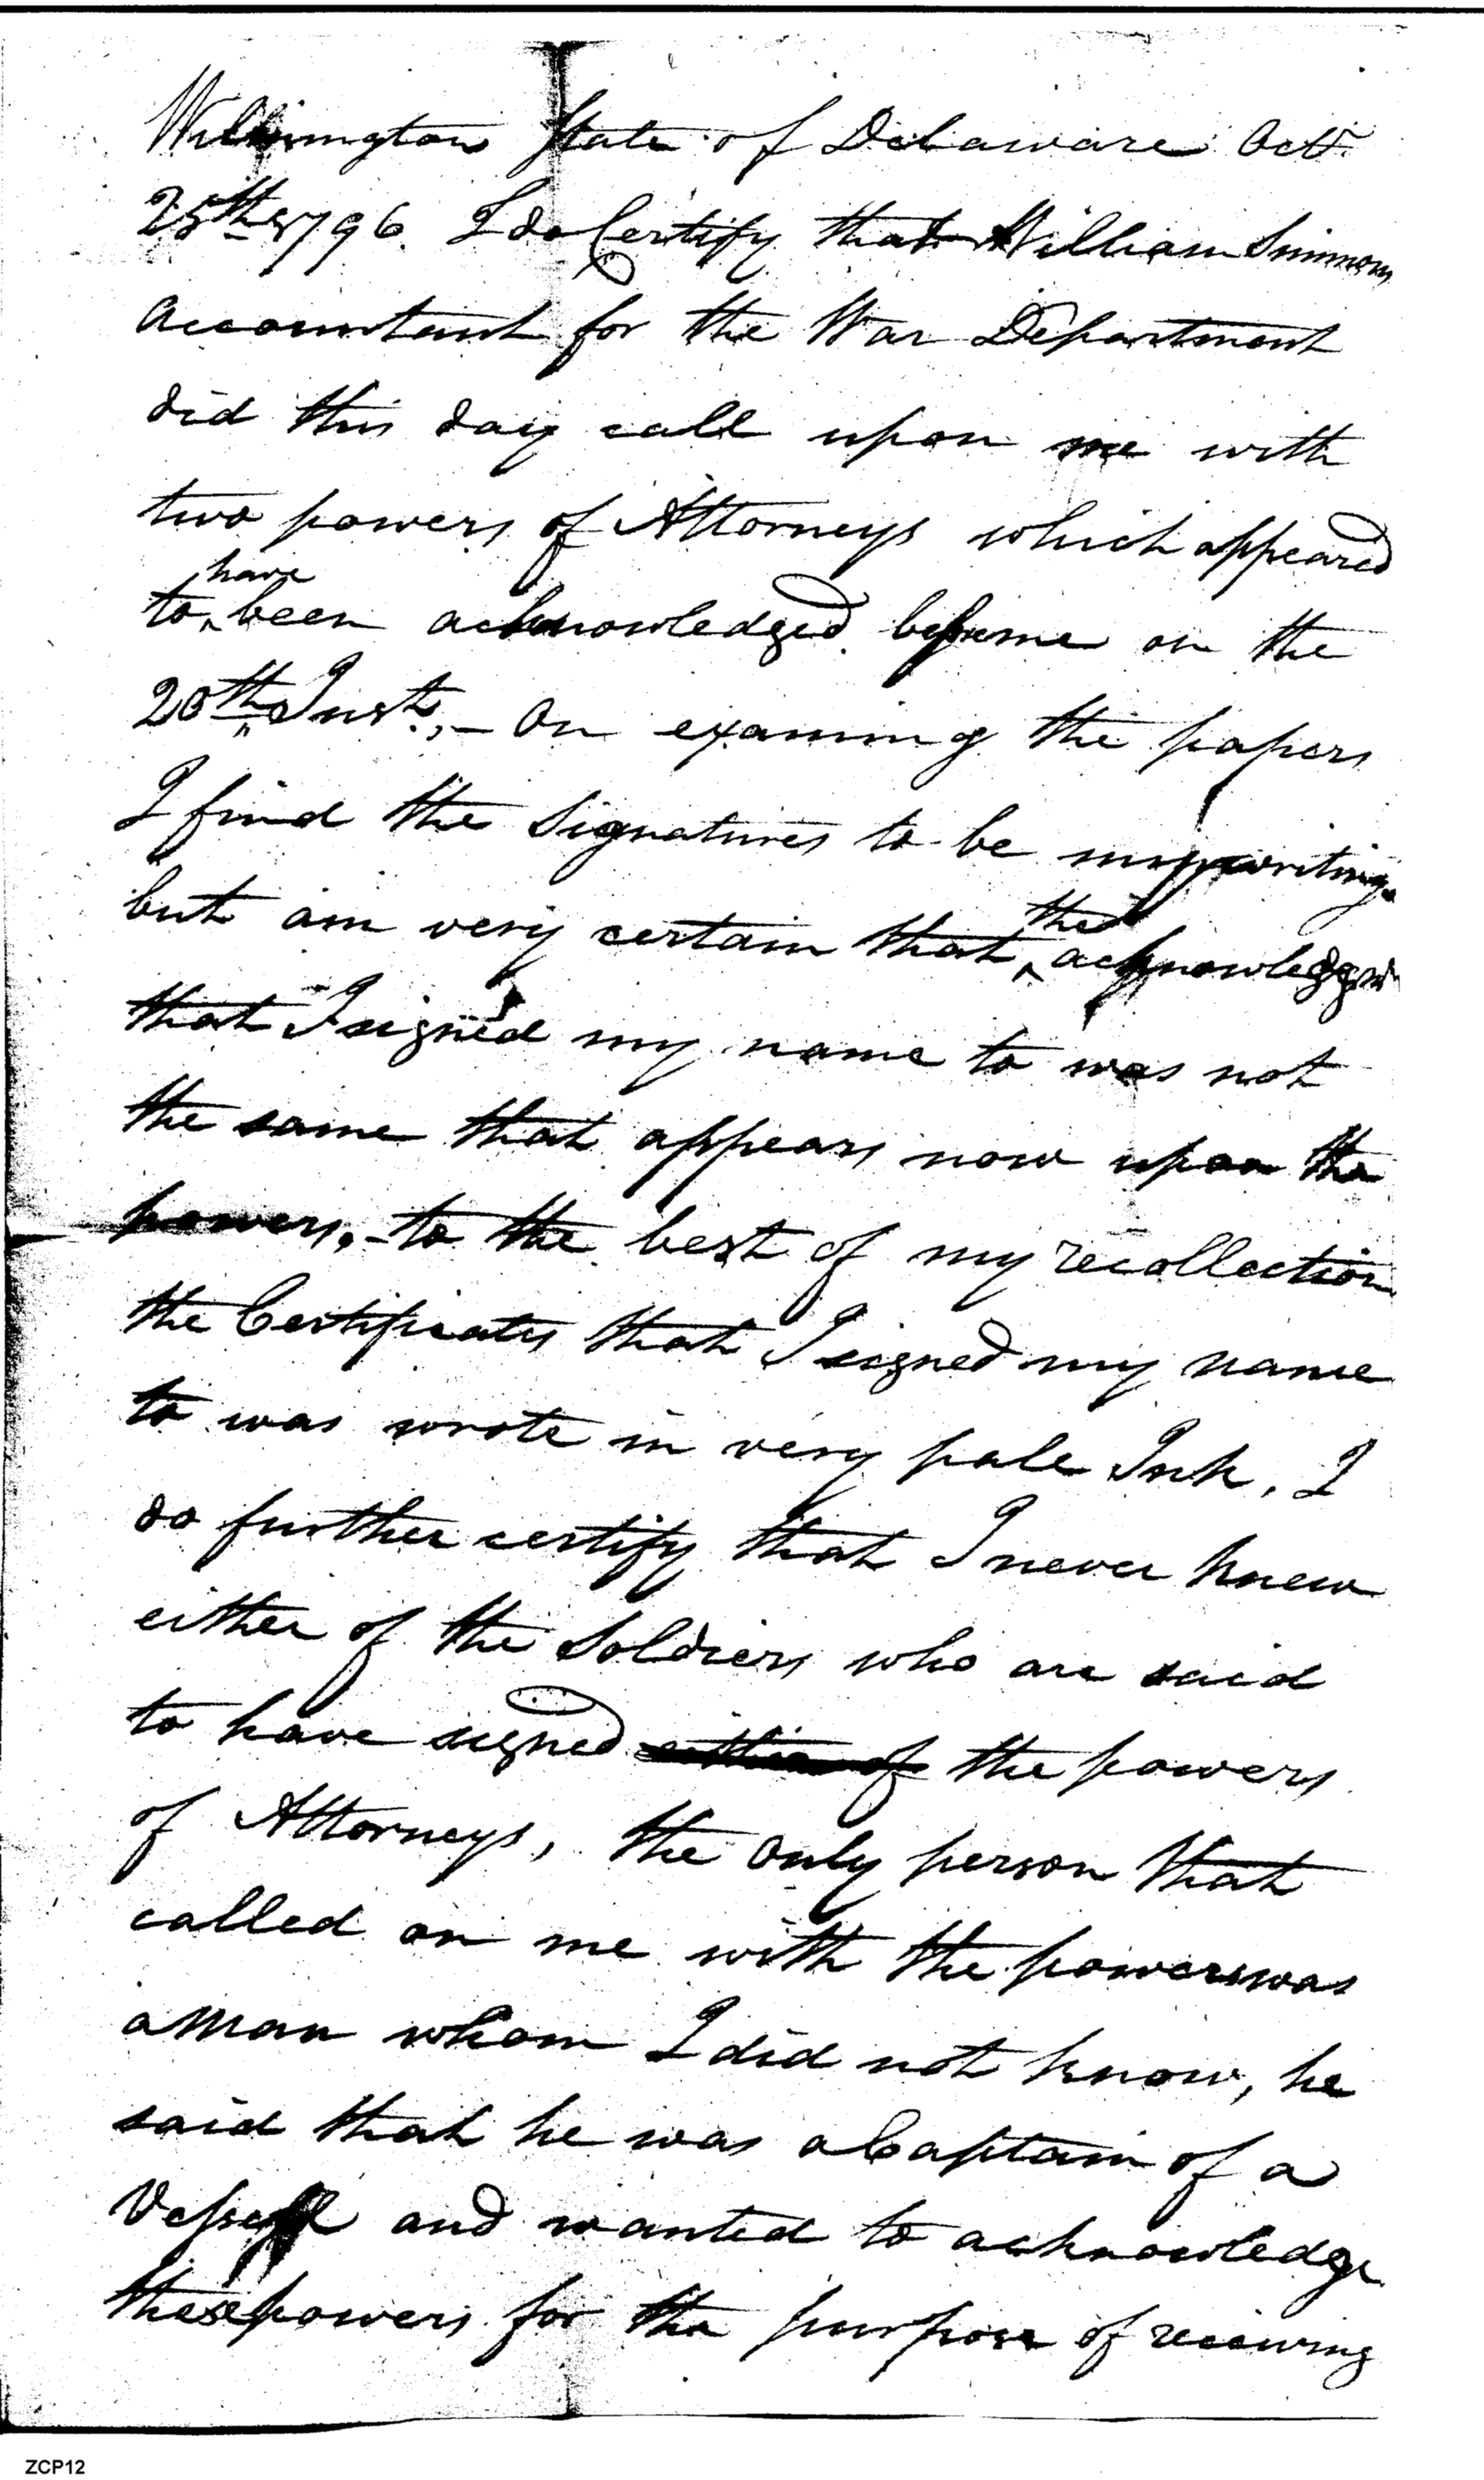 Wilmington State of Delaware Octr.
25th 1796. I do Certify that William Simmons
Accountant for the War Department
did this day call upon me with
two powers of Attorneys which appeared
to have been acknowledged before me on the
20th Inst., - On examining the papers
I find the Signatures to be my writing.
but am very certain that the
that I signed my name to was not
the same that appears now upon the
powers. - to the best of my recollection
the Certificates that I signed my name
to was wrote in very pale Ink, I
do further certify that I never knew
either of the Soldiers who are said
to have signed either of the powers
of Attorneys, the Only person that
called on me with the powers was
a Man whom I did not know, he
said that he was a Captain of a
Vessell and wanted to acknowledge
these powers for the purpose of receiving
ZCP12